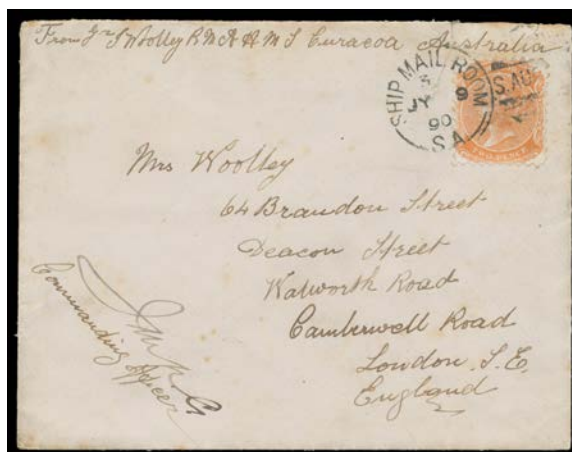 From Gr J Woolley R M A H M S Curacoa Australia
SHIP MAIL ROOM
JY 9
90
S.A
S.AU
TWO PENCE
Mrs Woolley
64 Brandon Street
Deacon Street
Walworth Road
Camberwell Road
London. S.E.
England
Commanding Officer